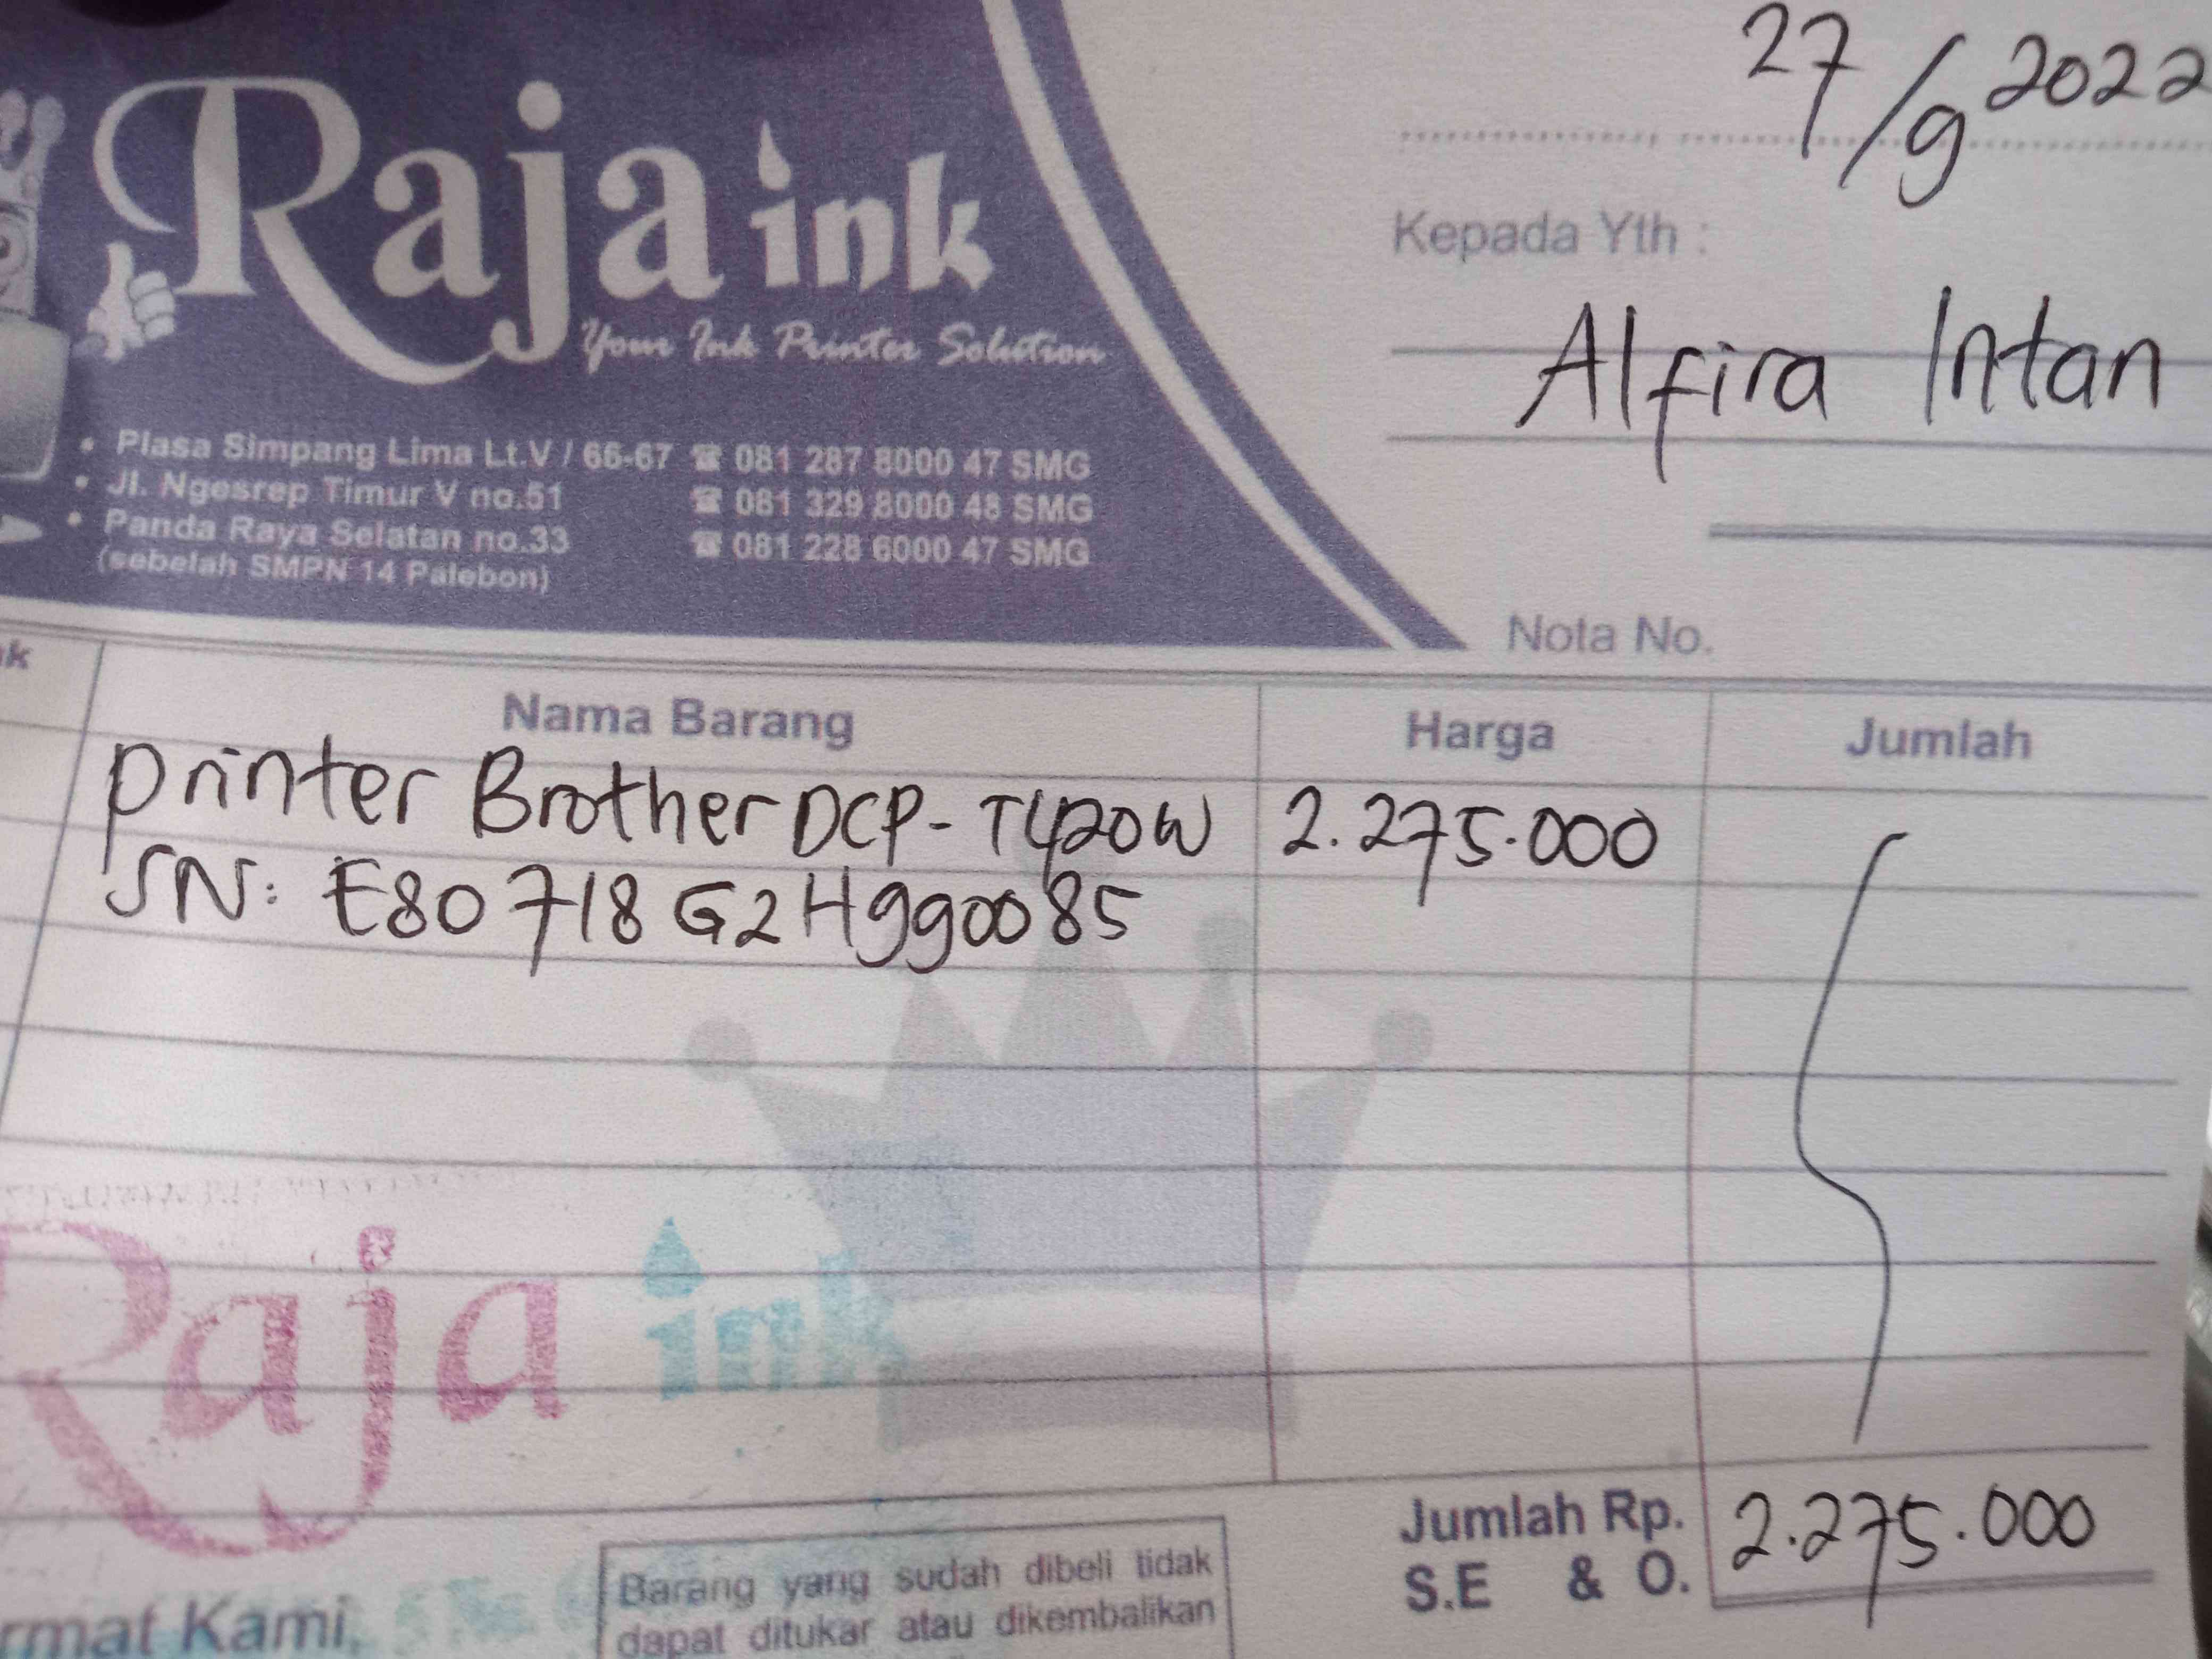 27/9 2022
Raja ink
Your Ink Printer Solution
Kepada Yth :
Alfira Intan
• Plasa Simpang Lima Lt.V / 66-67 ☎ 081 287 8000 47 SMG
• Jl. Ngesrep Timur V no.51 ☎ 081 329 8000 48 SMG
• Panda Raya Selatan no.33 ☎ 081 228 6000 47 SMG
(sebelah SMPN 14 Palebon)
Nota No.
Nama Barang Harga Jumlah
Printer Brother DCP-T420W 2.275.000
SN: E80718G2H990085
Raja ink
Jumlah Rp. 2.275.000
S.E & O.
Kami,
Barang yang sudah dibeli tidak
dapat ditukar atau dikembalikan